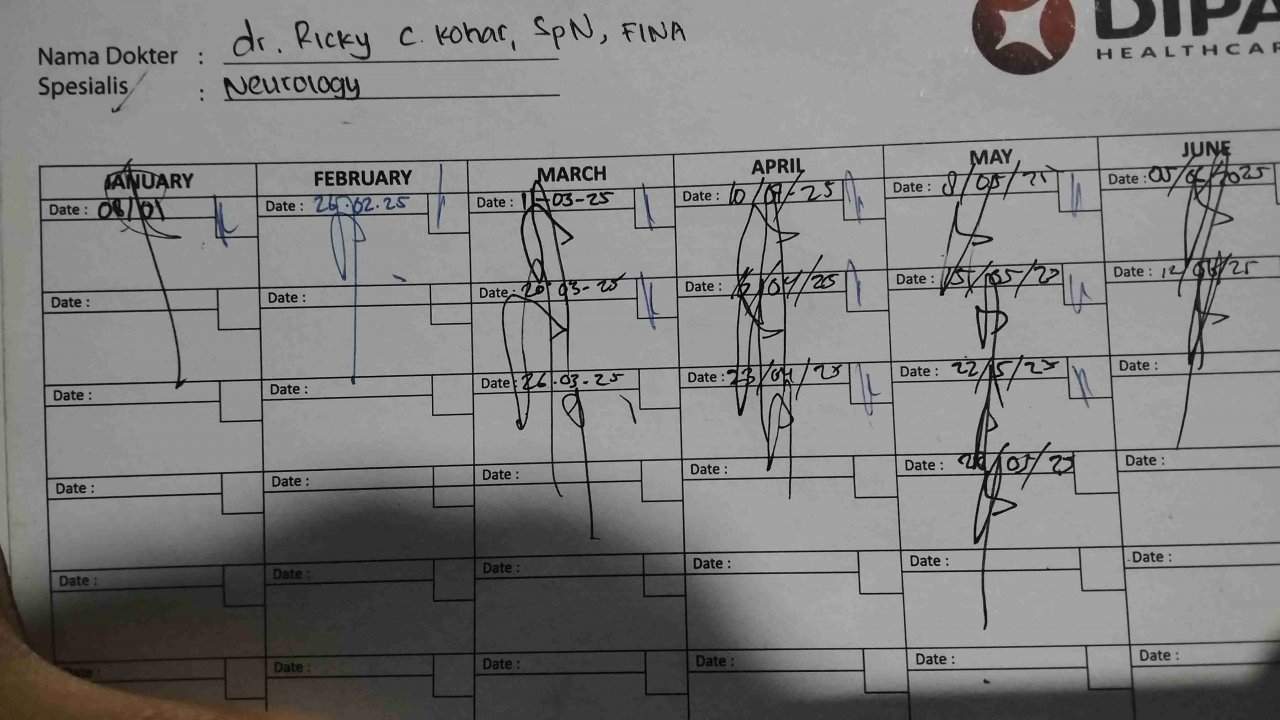 Nama Dokter : dr. Ricky C. Kohar, SpN, FINA
Spesialis : Neurology
DIPA
HEALTHCAR
JANUARY FEBRUARY MARCH APRIL MAY JUNE
Date : 08/01 Date : 26.02.25 Date : -03-25 Date : 10/04-25 Date : 8/05/25 Date : 05/06/2025
Date : Date : Date : 20-03-25 Date : /04/25 Date : 15/05/25 Date : 12/06/25
Date : Date : Date : 26-03-25 Date : 23/04/25 Date : 22/5/25 Date :
Date : Date : Date : Date : Date : /05/25 Date :
Date : Date : Date : Date : Date : Date :
Date : Date : Date : Date : Date : Date :